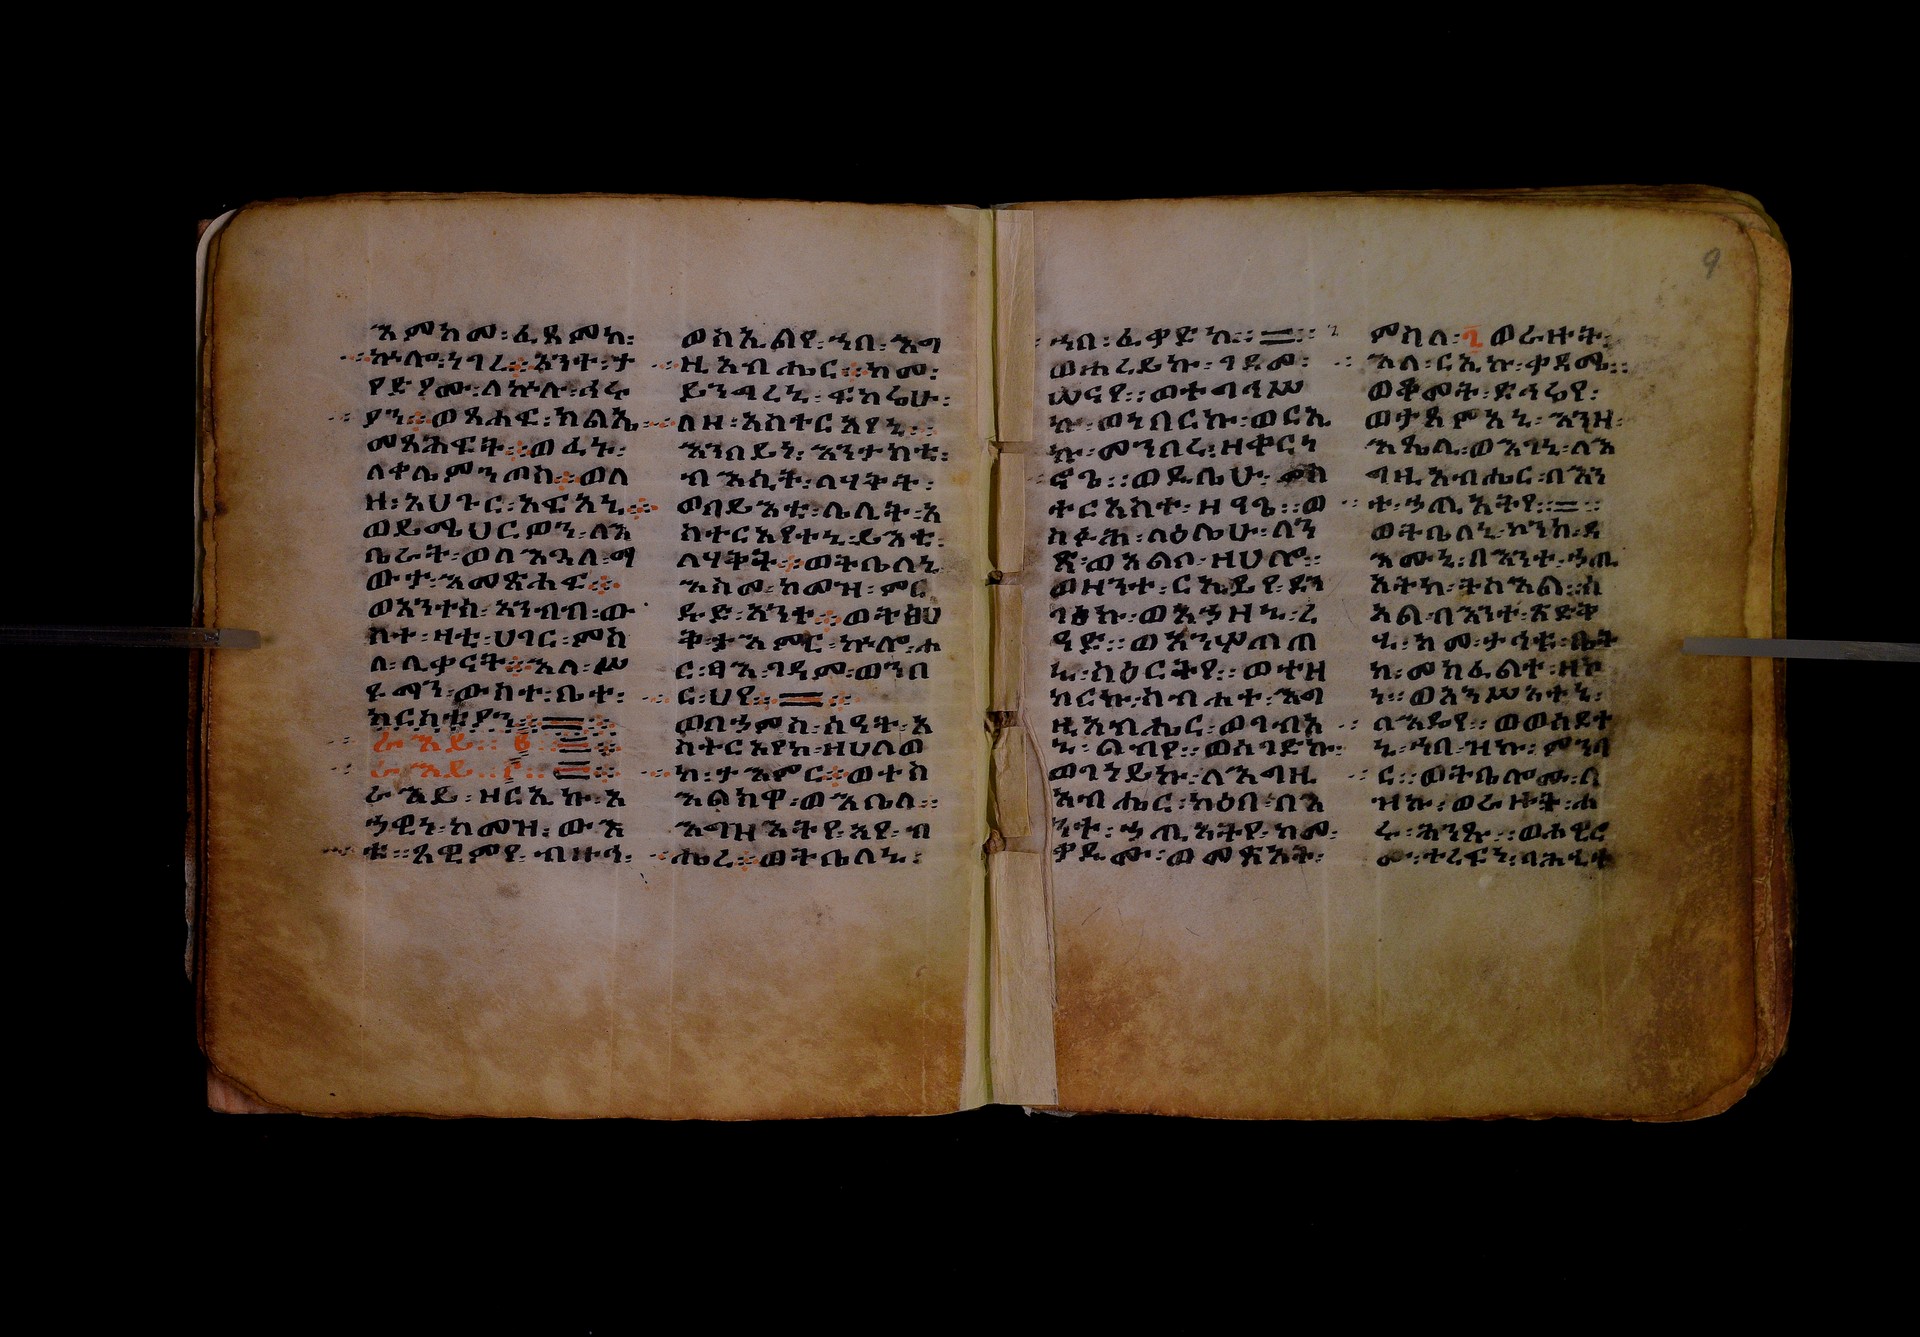 እምከመ፡ፈጸመከ፡
ኵሎ፡ነገረ፡አንተ፡ታ
የድዖሙ፡ለኵሉ፡ኅሩ
ያን፡ወጸሐፍ፡ክልኤ
መጻሕፍት፡ወፈኑ፡
ለቀሌምንጦስ፡ወለ
ዘ፡አህጉር፡አፍአኒ፡
ወይሜህርዎን፡ለእ
ቤራት፡ወለእጓለ፡ማ
ውታ፡እመጽሐፍ፡
ወአንተሰ፡አንብብ፡ው
ስተ፡ዛቲ፡ሀገር፡ምስ
ለ፡ሊቃናት፡እለ፡ሠ
የማን፡ውስተ፡ቤተ፡
ክርስቲያን፡
ራእይ፡
ራእይ፡
ራእይ፡ዘርኢኩ፡አ
ኃዊነ፡ከመዝ፡ውእ
ቱ፡ጸዊምየ፡ብዙኃ፡
ወስኢልየ፡ኀበ፡እግ
ዚአብሔር፡ከመ፡
ይንግረኒ፡ፍካሬሁ፡
ለዘ፡አስተርአየኒ፡
እንበይነ፡እንታክቲ፡
ብእሲት፡ለሃትት፡
ወበይእቲ፡ሌሊት፡አ
ስተርአየተኒ፡ይእቲ፡
ለሃትት፡ወትቤለኒ
እስመ፡ከመዝ፡ምር
ዱድ፡አንተ፡ወትፀህ
ቅ፡ታእምር፡ኵሎ፡ሐ
ር፡ፃእ፡ገዳመ፡ወንበ
ር፡ህየ፡
ወበኃምስ፡ሰዓት፡አ
ስተርአየከ፡ዘሀለወ
ከ፡ታእምር፡ወተስ
እልክዋ፡ወእቤለ፡
እግዝእትየ፡አየ፡ብ
ሔረ፡ወትቤለኒ፡
ኀበ፡ፈቃድከ፡
ወሐረይኩ፡ገዳመ፡
ሠናየ፡ወተግኅሠ
ኩ፡ወነበርኩ፡ወርኢ
ኩ፡መንበረ፡ዘቀርነ
ናጌ፡ወዲቤሁ፡
ተርአስተ፡ዘ፡ወ
ስፉሕ፡ላዕሌሁ፡ለን
ጽ፡ወአልቦ፡ዘሀሎ፡
ወዘንተ፡ርእይየ፡ደን
ገፅኩ፡ወአኃዘኒ፡ረ
ዓድ፡ወአንሦጠጠ
ኒ፡ስዕርትየ፡ወተዘ
ከርኩ፡ስብሐተ፡እግ
ዚአብሔር፡ወገብአ
ኒ፡ልብየ፡ወሰገድኩ፡
ወገነይኩ፡ለእግዚ
አብሔር፡ከዕበ፡በእ
ንተ፡ኃጢአትየ፡ከመ፡
ቀዲሙ፡ወመጽአት፡
ምስለ፡፮ወራዙት፡
እለ፡ርኢኩ፡ቀዳሜ፡
ወቆመት፡ድኅሬየ፡
ወታጸምአኒ፡እንዘ፡
እጼሊ፡ወእገኒ፡ለእ
ግዚአብሔር፡በእን
ተ፡ኃጢአትየ፡
ወትቤለኒ፡ኮንከ፡ዳ
እሙኒ፡በእንተ፡ኃጢ
አትከ፡ትስእል፡ሰ
አል፡በእንተ፡ጽድቅ
ኒ፡ከመ፡ታኅቱ፡ቤት
ከ፡መክፈልተ፡ዘከ
ነ፡ወአንሥአተኒ፡
በእዴየ፡ወወሰደተ
ኒ፡ኀበ፡ዝኩ፡መንበ
ር፡ወትቤሎሙ፡ለ
ዝኩ፡ወራዙት፡ሐ
ሩ፡ሕንጹ፡ወሐዊሮ
ሙ፡ተረፍነ፡ባሕቲት